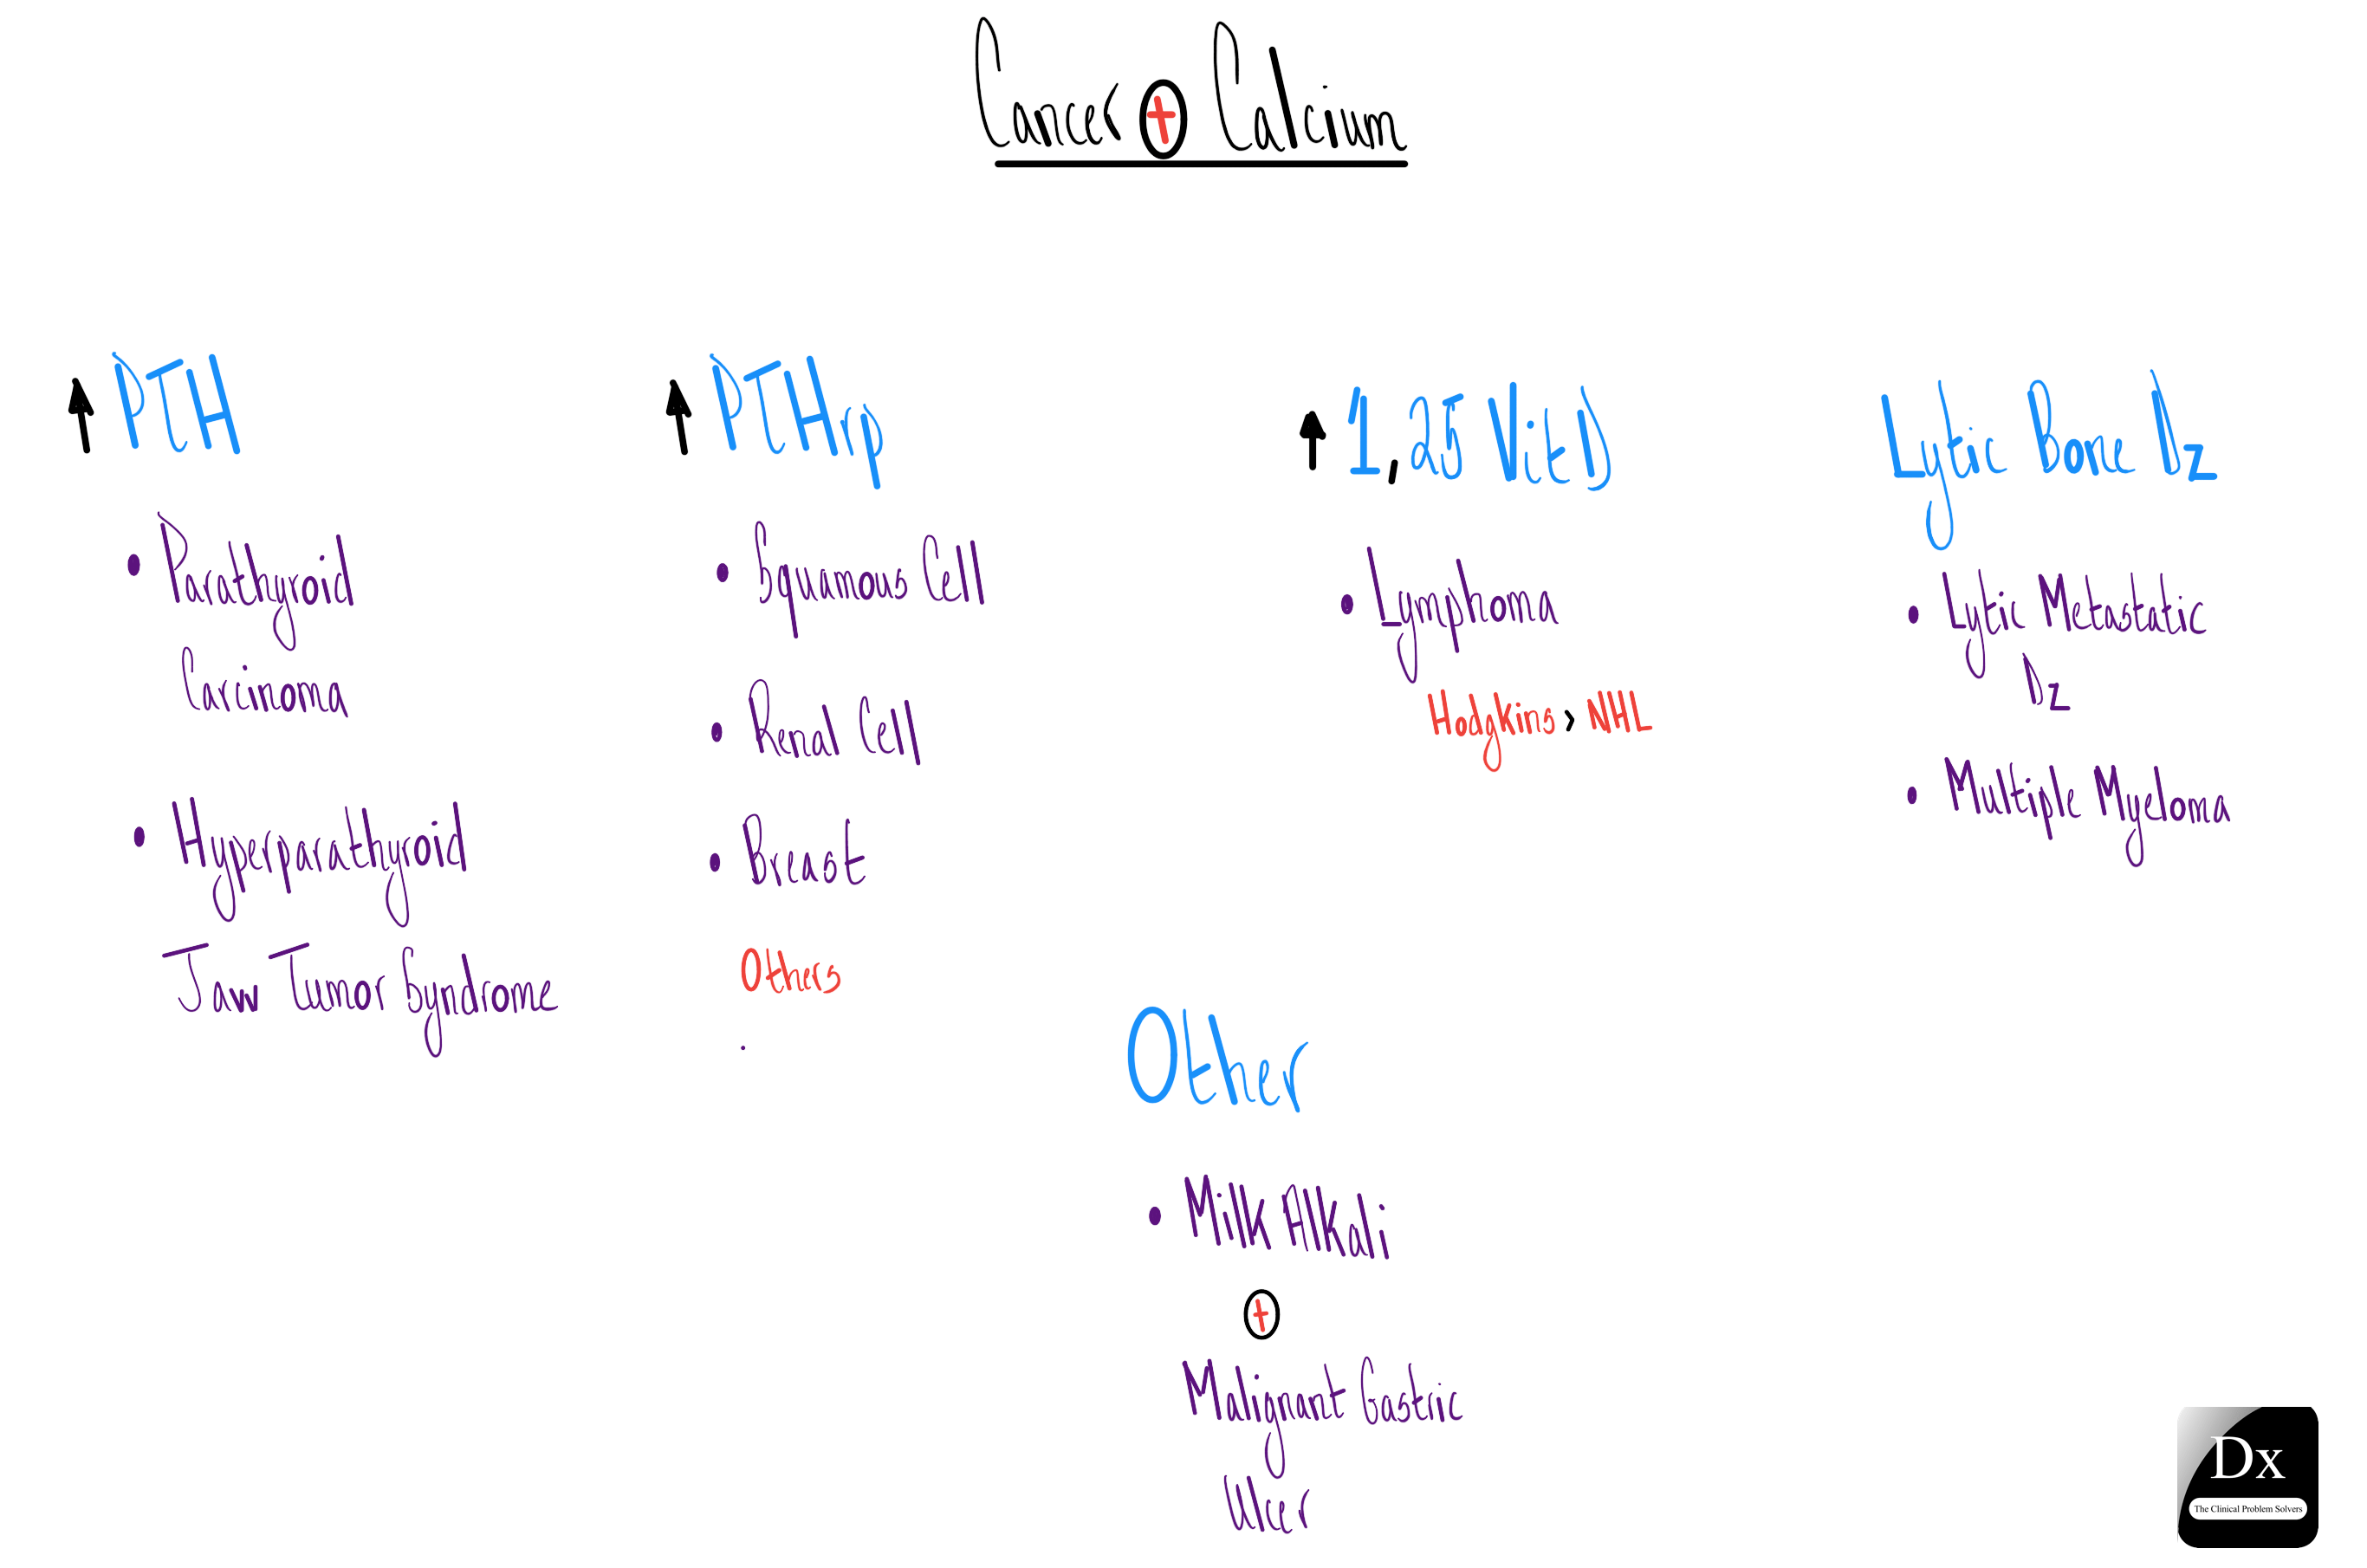 Cancer + Calcium
↑ PTH
• Parathyroid
Carcinoma
• Hyperparathyroid
Jaw Tumor Syndrome
↑ PTHrp
• Squamous Cell
• Renal Cell
• Breast
Others
↑ 1,25 Vit D
• Lymphoma
Hodgkins > NHL
Lytic Bone Dz
• Lytic Metastatic
Dz
• Multiple Myeloma
Other
• Milk Alkali
+
Malignant Gastric
Ulcer
Dx
The Clinical Problem Solvers